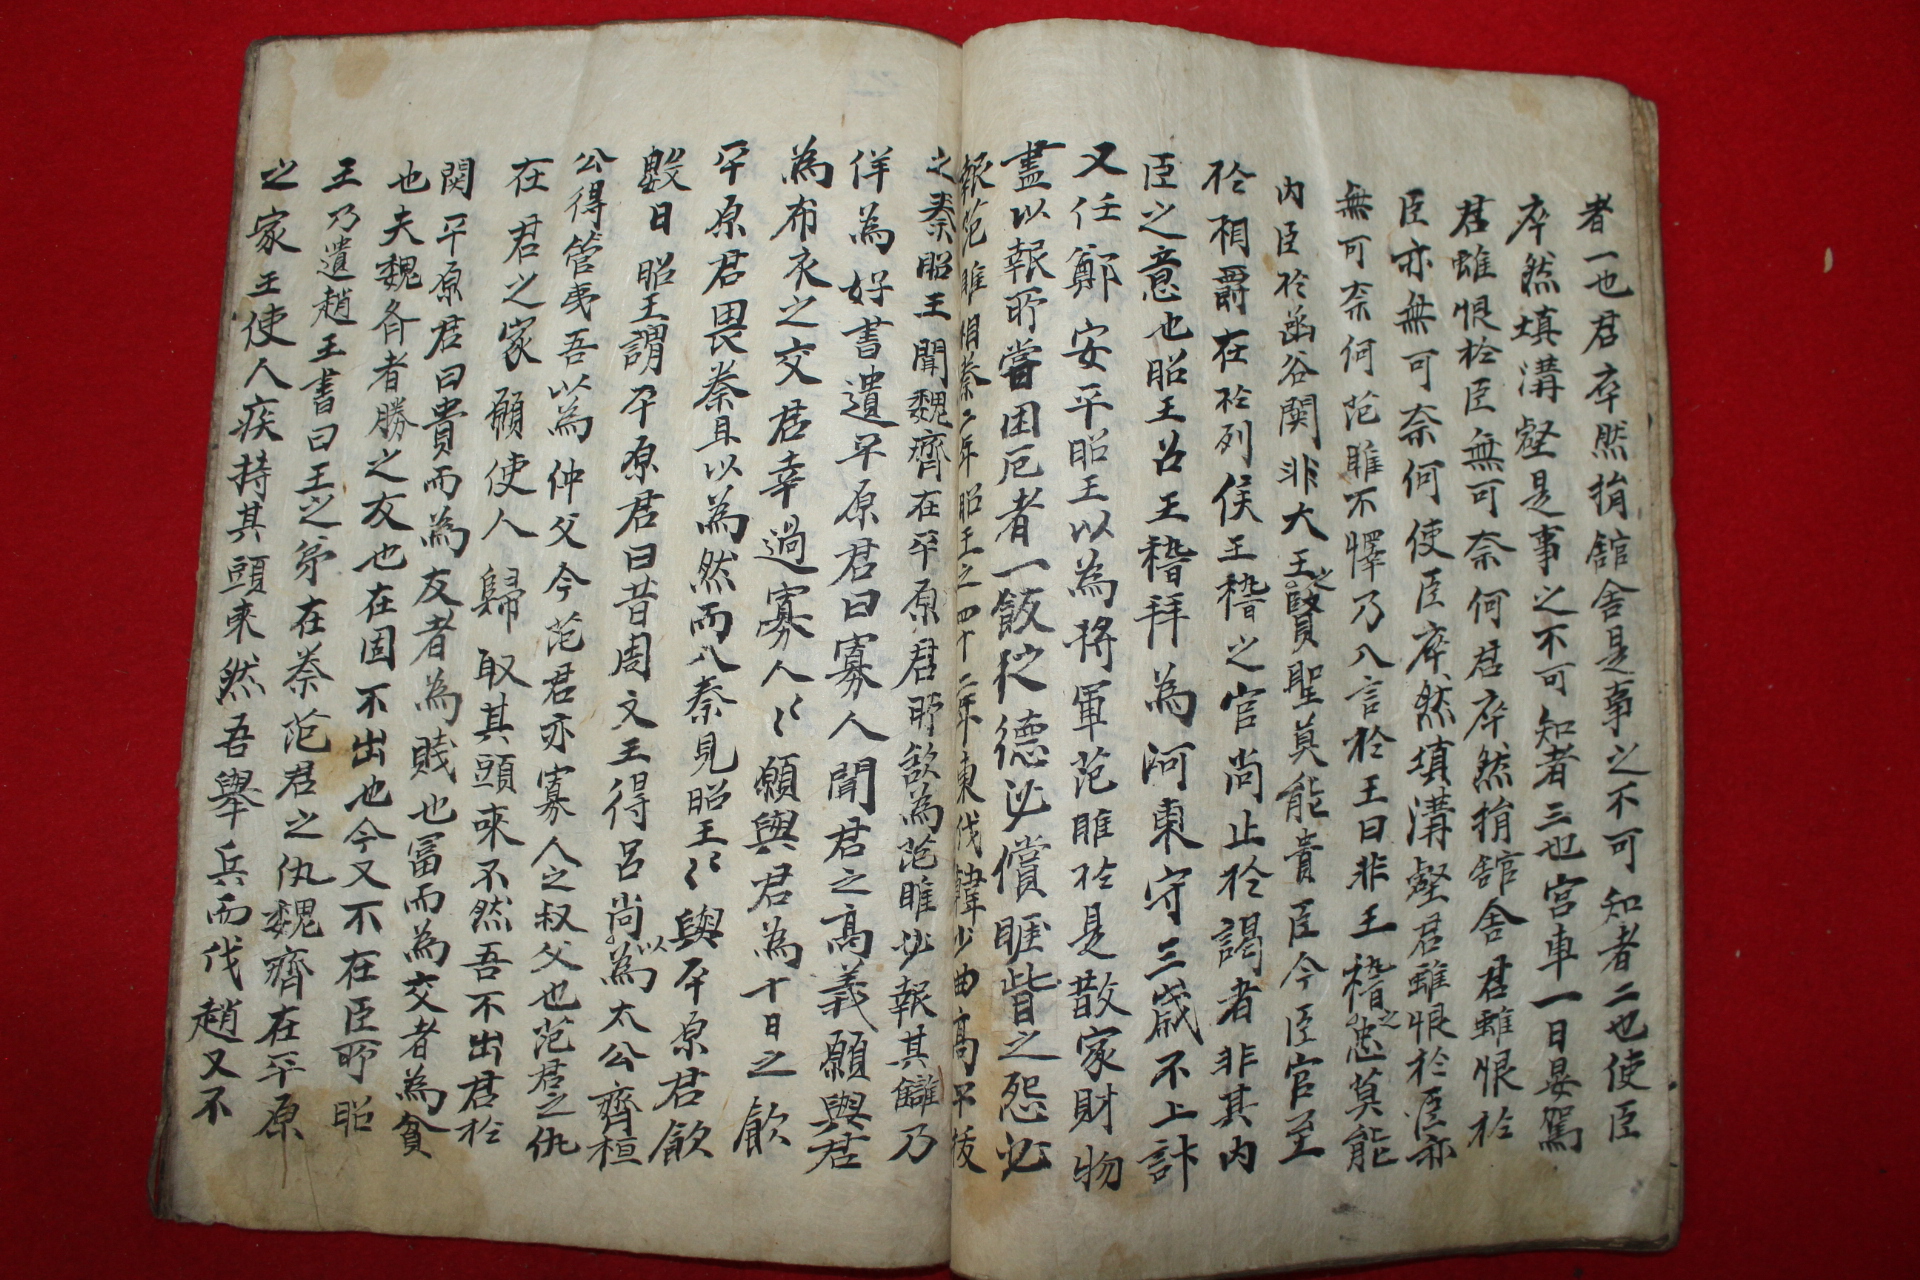 者一也君卒然捐舘舍是事之不可知者二也使臣
卒然填溝壑是事之不可知者三也宮車一日晏駕
君雖恨於臣無可奈何君卒然捐舘舍君雖恨於
臣亦無可奈何使臣卒然填溝壑君雖恨於臣亦
無可奈何范睢不懌乃入言於王曰非王稽之忠莫能
內臣於函谷関非大王之賢聖莫能貴臣今臣官至
於相爵在於列侯王稽之官尚止於謁者非其內
臣之意也昭王召王稽拜為河東守三歲不上計
又任鄭安平昭王以為將軍范睢於是散家財物
盡以報所嘗困厄者一飯之德必償睚眥之怨必
報范睢相秦二年昭王之四十二年東伐韓少曲高平拔
之秦昭王聞魏齊在平原君所欲為范睢必報其讎乃
佯為好書遺平原君曰寡人聞君之高義願與君
為布衣之交君幸過寡人〻願與君為十日之飮
平原君畏秦且以為然而入秦見昭王〻與平原君飮
數日昭王謂平原君曰昔周文王得呂尚以為太公齊桓
公得管夷吾以為仲父今范君亦寡人之叔父也范君之仇
在君之家願使人歸取其頭來不然吾不出君於
関平原君曰貴而為友者為賤也富而為交者為貧
也夫魏齐者勝之友也在固不出也今又不在臣所昭
王乃遺趙王書曰王之弟在秦范君之仇魏齊在平原
之家王使人疾持其頭來然吾舉兵而伐趙又不